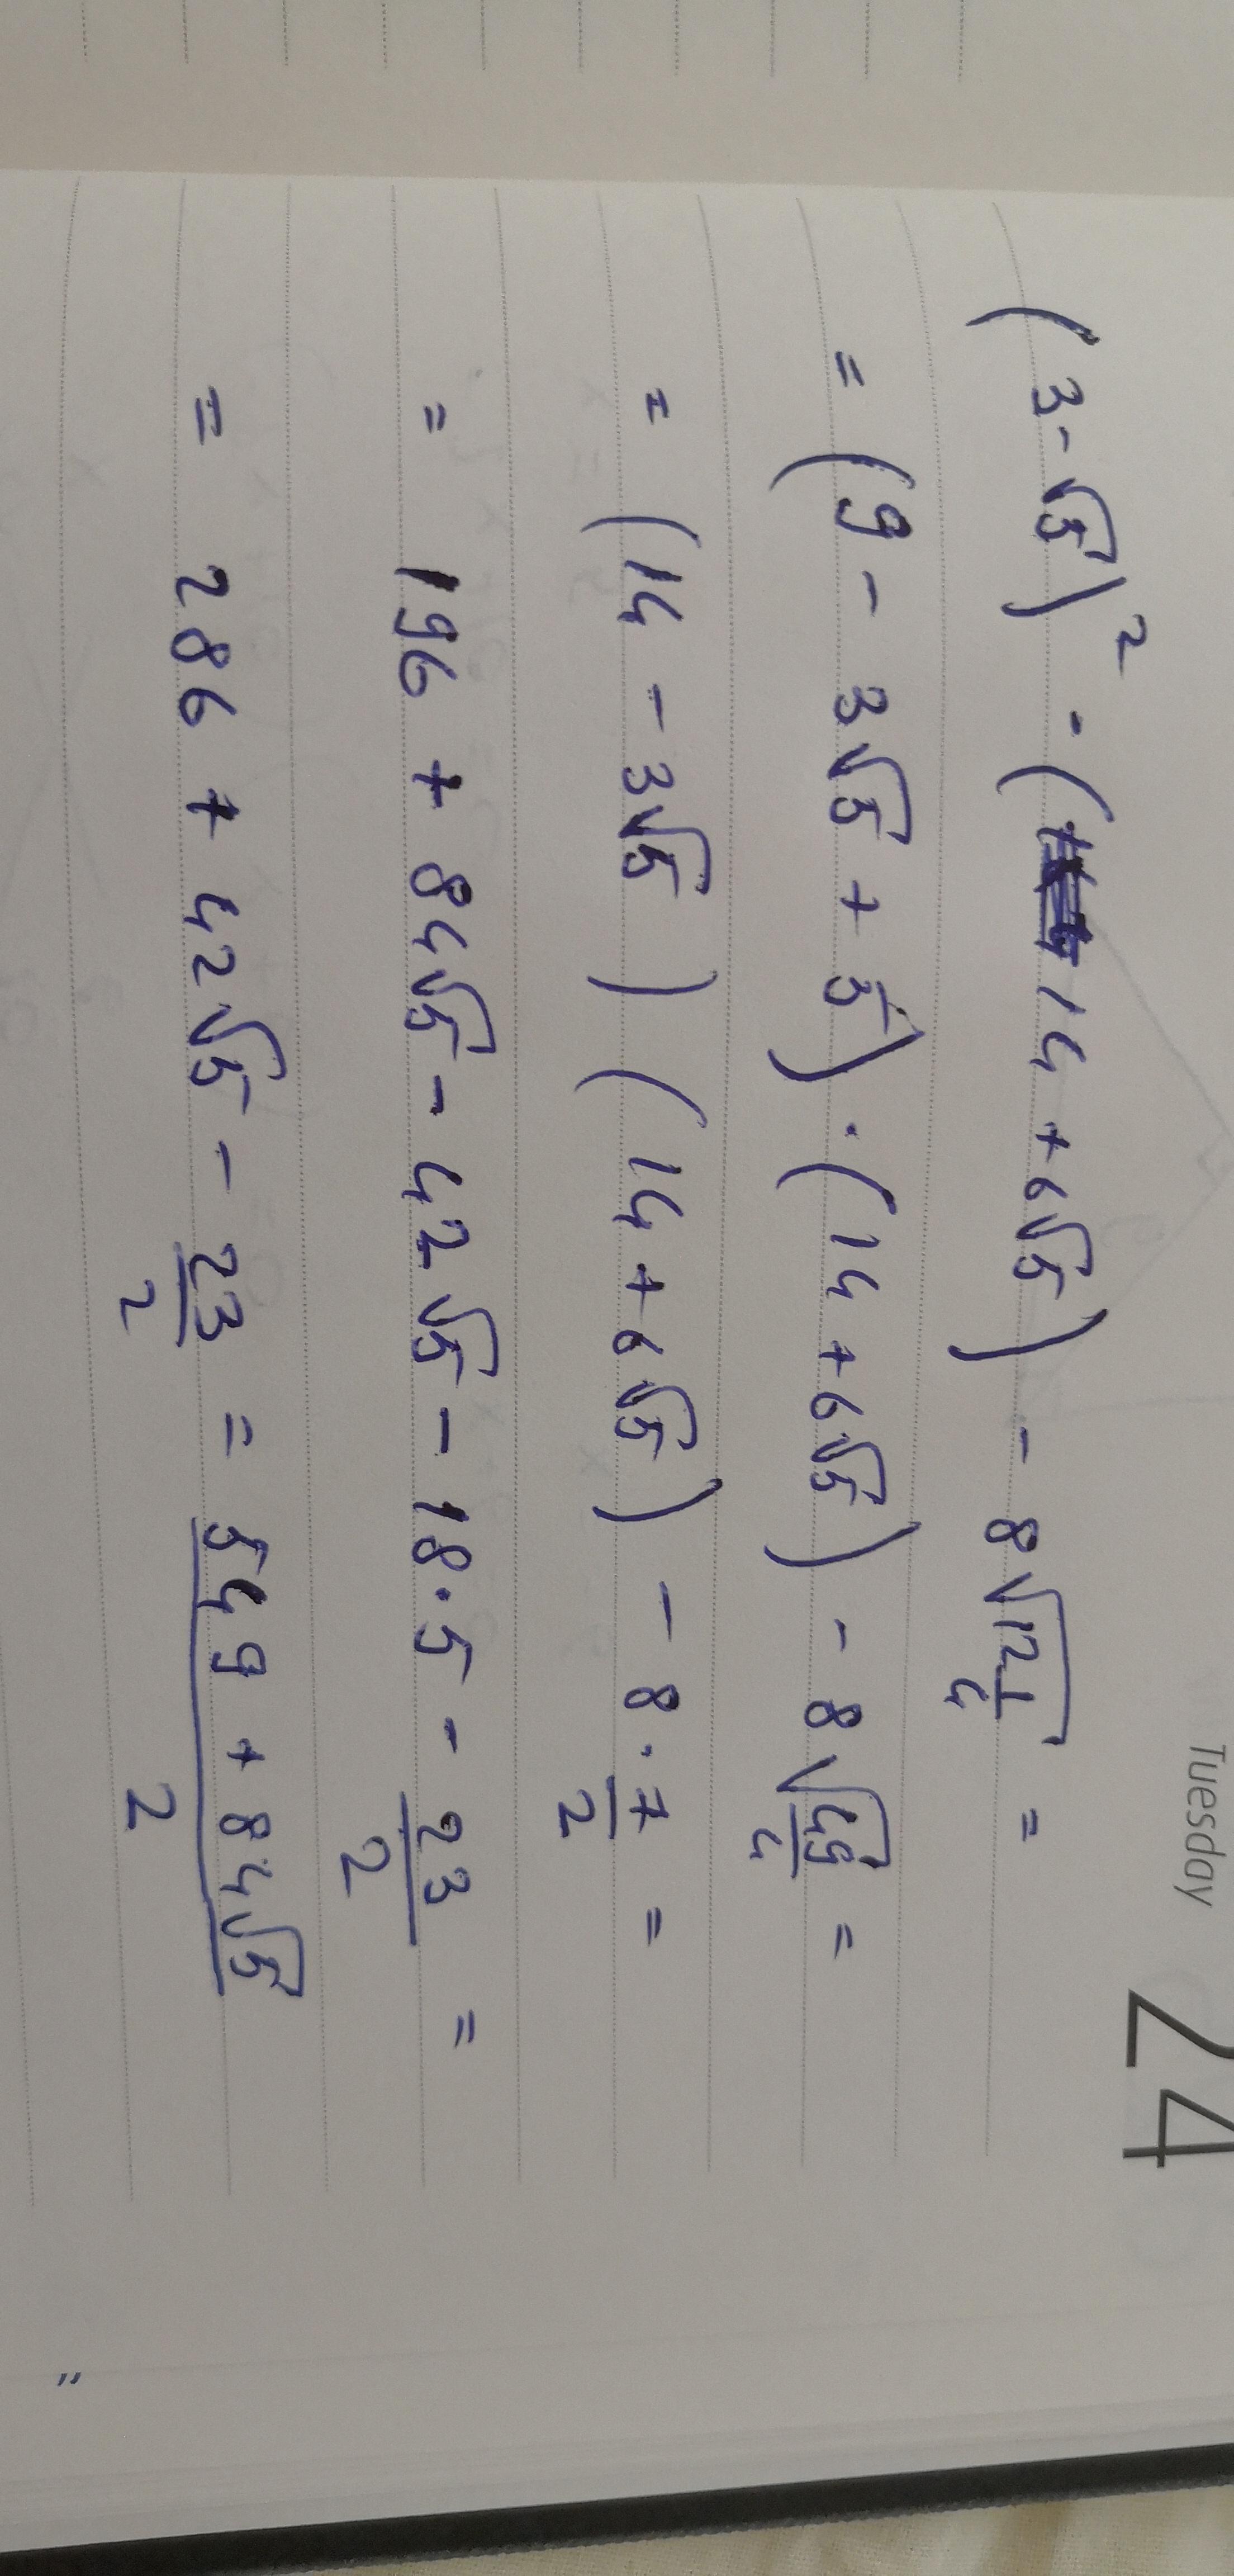 Tuesday 24
(3-√5)² · (14 + 6√5) - 8√(12 1/4) =
= (9 - 3√5 + 5) · (14 + 6√5) - 8√(49/4) =
= (14 - 3√5) (14 + 6√5) - 8 · 7/2 =
= 196 + 84√5 - 42√5 - 18·5 - 23/2 =
= 286 + 42√5 - 23/2 = (549 + 84√5)/2
"